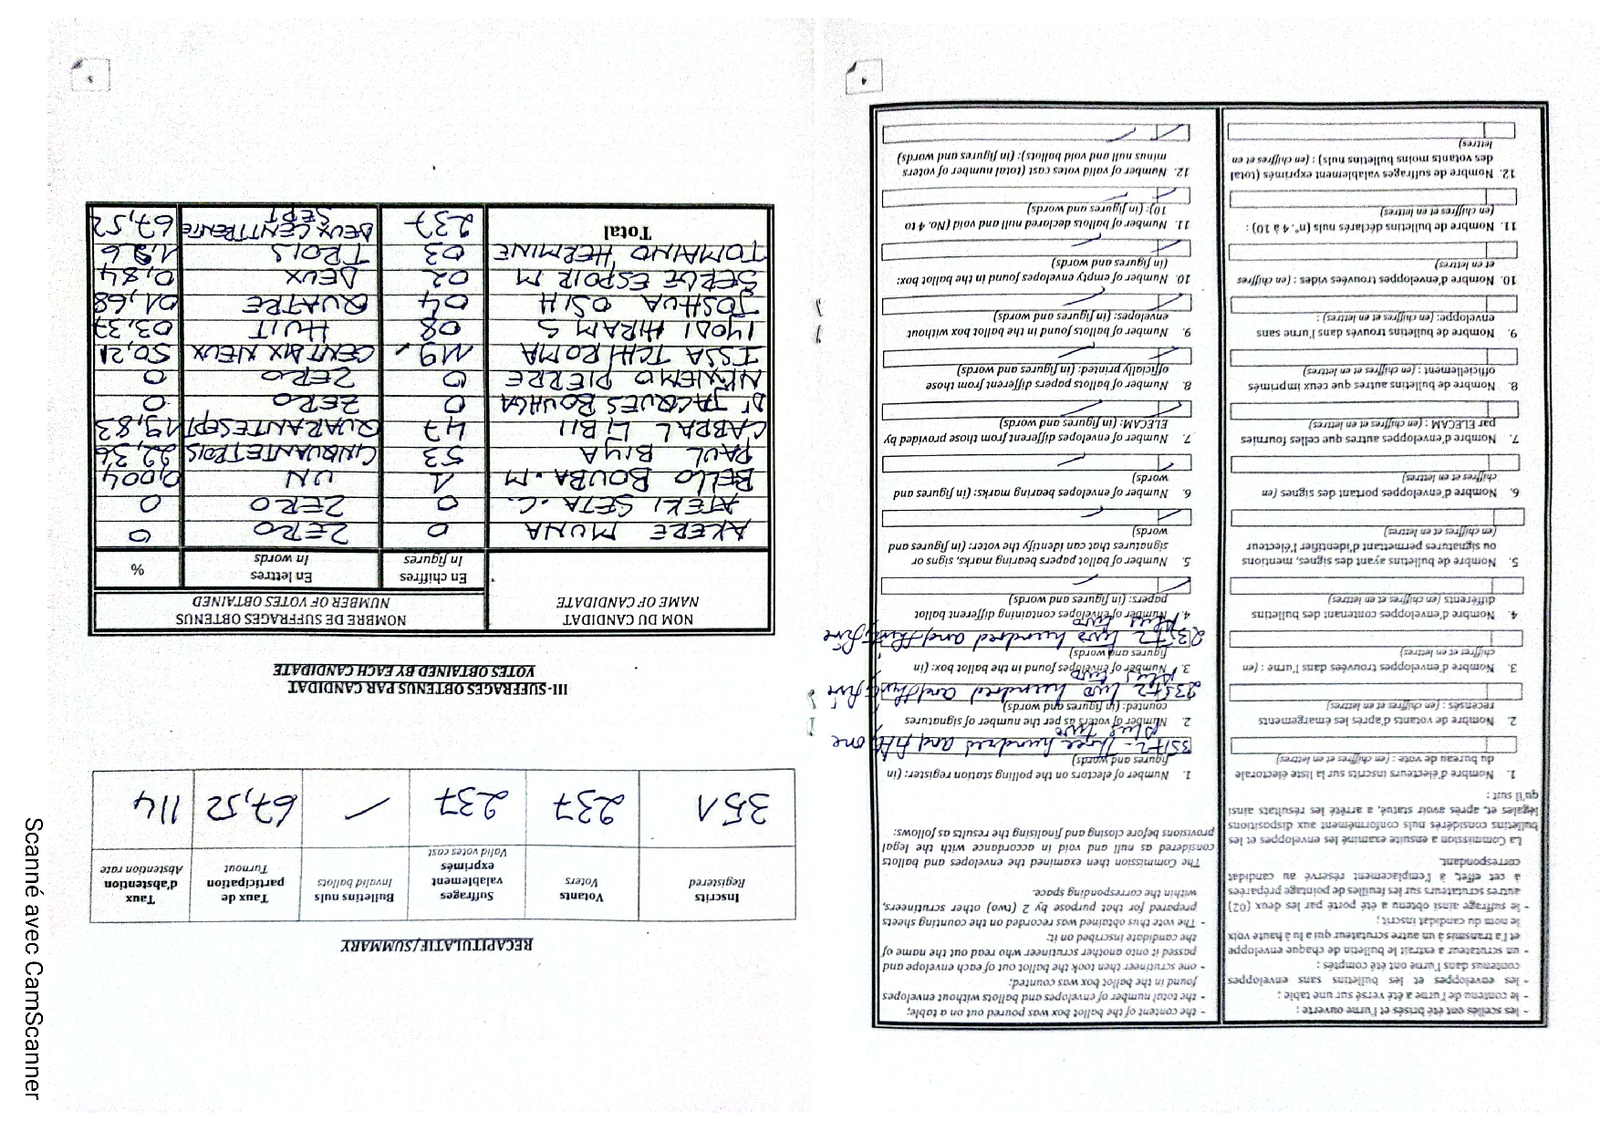 4
- les scellés ont été brisés et l'urne ouverte ;
- le contenu de l'urne a été versé sur une table ;
- les enveloppes et les bulletins sans enveloppes
contenus dans l'urne ont été comptés ;
- un scrutateur a extrait le bulletin de chaque enveloppe
et l'a transmis à un autre scrutateur qui a lu à haute voix
le nom du candidat inscrit ;
- le suffrage ainsi obtenu a été porté par les deux (02)
autres scrutateurs sur les feuilles de pointage préparées
à cet effet, à l'emplacement réservé au candidat
correspondant.
La Commission a ensuite examiné les enveloppes et les
bulletins considérés nuls conformément aux dispositions
légales et, après avoir statué, a arrêté les résultats ainsi
qu'il suit :
1. Nombre d'électeurs inscrits sur la liste électorale
du bureau de vote : (en chiffres et en lettres)
2. Nombre de votants d'après les émargements
recensés : (en chiffres et en lettres)
3. Nombre d'enveloppes trouvées dans l'urne : (en
chiffres et en lettres)
4. Nombre d'enveloppes contenant des bulletins
différents (en chiffres et en lettres)
5. Nombre de bulletins ayant des signes, mentions
ou signatures permettant d'identifier l'électeur
(en chiffres et en lettres)
6. Nombre d'enveloppes portant des signes (en
chiffres et en lettres)
7. Nombre d'enveloppes autres que celles fournies
par ELECAM : (en chiffres et en lettres)
8. Nombre de bulletins autres que ceux imprimés
officiellement : (en chiffres et en lettres)
9. Nombre de bulletins trouvés dans l'urne sans
enveloppe: (en chiffres et en lettres) :
10. Nombre d'enveloppes trouvées vides : (en chiffres
et en lettres)
11. Nombre de bulletins déclarés nuls (n°. 4 à 10) :
(en chiffres et en lettres)
12. Nombre de suffrages valablement exprimés (total
des votants moins bulletins nuls) : (en chiffres et en
lettres)
- the content of the ballot box was poured out on a table;
- the total number of envelopes and ballots without envelopes
found in the ballot box was counted;
- one scrutineer then took the ballot out of each envelope and
passed it onto another scrutineer who read out the name of
the candidate inscribed on it;
- The vote thus obtained was recorded on the counting sheets
prepared for that purpose by 2 (two) other scrutineers,
within the corresponding space.
The Commission then examined the envelopes and ballots
considered as null and void in accordance with the legal
provisions before closing and finalising the results as follows:
1. Number of electors on the polling station register: (in
figures and words)
351+2 - Three hundred and fifty one
plus two
2. Number of voters as per the number of signatures
counted: (in figures and words)
235+2 two hundred and thirty five
plus two
3. Number of envelopes found in the ballot box: (in
figures and words)
235+2 two hundred and thirty five
plus two
4. Number of envelopes containing different ballot
papers: (in figures and words)
5. Number of ballot papers bearing marks, signs or
signatures that can identify the voter: (in figures and
words
6. Number of envelopes bearing marks: (in figures and
words)
7. Number of envelopes different from those provided by
ELECAM: (in figures and words)
8. Number of ballot papers different from those
officially printed: (in figures and words)
9. Number of ballots found in the ballot box without
envelopes: (in figures and words)
10. Number of empty envelopes found in the ballot box:
(in figures and words)
11. Number of ballots declared null and void (No. 4 to
10): (in figures and words)
12. Number of valid votes cast (total number of voters
minus null and void ballots): (in figures and words)
RECAPITULATIF/SUMMARY
Inscrits Registered | Votants Voters | Suffrages valablement exprimés Valid votes cast | Bulletins nuls Invalid ballots | Taux de participation Turnout | Taux d'abstention Abstention rate
351 | 237 | 237 | / | 67,52 | 114
III- SUFFRAGES OBTENUS PAR CANDIDAT
VOTES OBTAINED BY EACH CANDIDATE
NOM DU CANDIDAT NAME OF CANDIDATE | NOMBRE DE SUFFRAGES OBTENUS NUMBER OF VOTES OBTAINED
En chiffres In figures | En lettres In words | %
AKERE MUNA 0 ZERO 0
ATEKI SETA.C. 0 ZERO 0
BELLO BOUBA.M 1 UN 0,004
PAUL BIYA 53 CINQUANTETROIS 22,36
CABRAL LIBII 47 QUARANTESEPT 19,83
Dr JACQUES BOUHGA 0 ZERO 0
NKWEMO PIERRE 0 ZERO 0
ISSA TCHIROMA 119 CENT DIX NEUX 50,21
IYODI HIRAM S 08 HUIT 03,37
JOSHUA OSIH 04 QUATRE 01,68
SERGE ESPOIR M 02 DEUX 0,84
TOMAINO HERMINE 03 TROIS 1,26
Total 237 DEUX CENT TRENTE SEPT 67,52
Scanné avec CamScanner